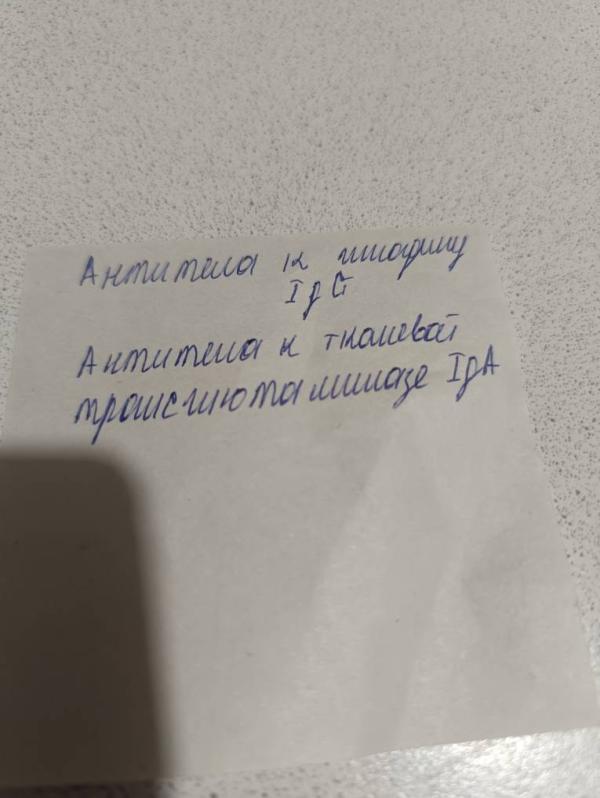 Антитела к глиадину
IgG
Антитела к тканевой
трансглютаминазе IgA